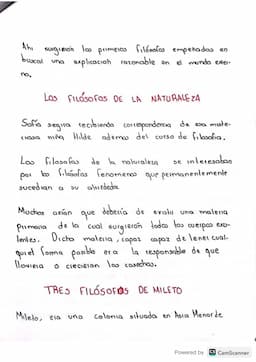 Ahi surgieron los primeros filósofos empeñados en
buscar una explicación razonable en el mundo exter-
no.
LOS FILÓSOFOS DE LA NATURALEZA
Sofia seguia recibiendo correspondencia de esa miste-
riosa niña Hilde ademas del curso de filosofia.
Los filosofos de la naturaleza se interesaban
por los fenomenos que permanentemente
sucedian a su alrededor
Muchos creian que deberia de existir una materia
primaria de la cual surgieron todos los cuerpos exis-
tentes. Dicha materia, capaz de tener cual-
quier forma posible era la responsable de que
lloviera o crecieran las cosechas.
TRES FILÓSOFOS DE MILETO
Mileto, era una colonia situada en Asia Menor de
Powered by CS CamScanner